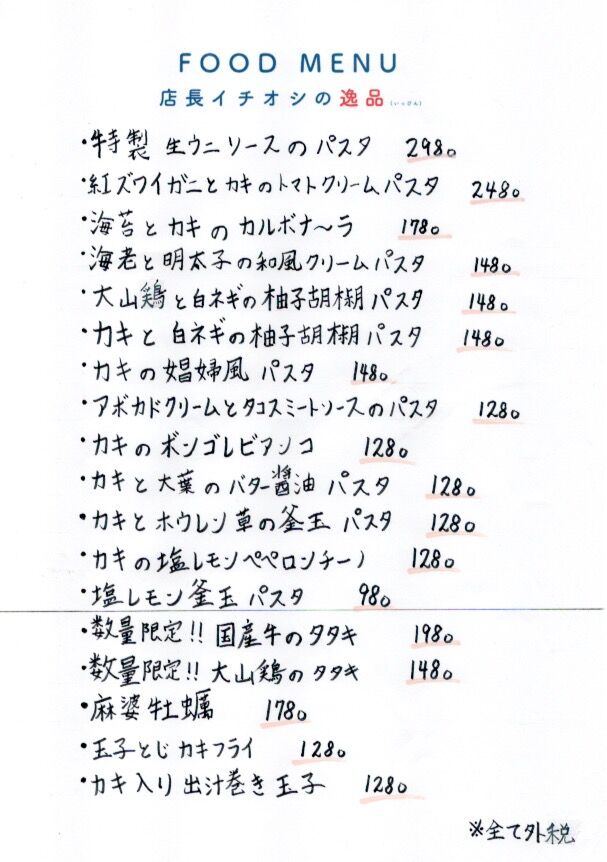 FOOD MENU
店長イチオシの逸品(いっぴん)
・特製 生ウニソースの パスタ 2980
・紅ズワイガニと カキのトマトクリームパスタ 2480
・海苔と カキの カルボナ〜ラ 1780
・海老と 明太子の和風クリームパスタ 1480
・大山鶏と白ネギの柚子胡椒パスタ 1480
・カキと 白ネギの柚子胡椒パスタ 1480
・カキの娼婦風 パスタ 1480
・アボカドクリームとタコスミートソースのパスタ 1280
・カキの ボンゴレビアンコ 1280
・カキと大葉のバター醤油 パスタ 1280
・カキとホウレン草の釜玉 パスタ 1280
・カキの塩レモンペペロンチーノ 1280
・塩レモン釜玉パスタ 980
・数量限定!! 国産牛のタタキ 1980
・数量限定!! 大山鶏のタタキ 1480
・麻婆牡蠣 1780
・玉子とじカキフライ 1280
・カキ入り出汁巻き玉子 1280
※全て外税